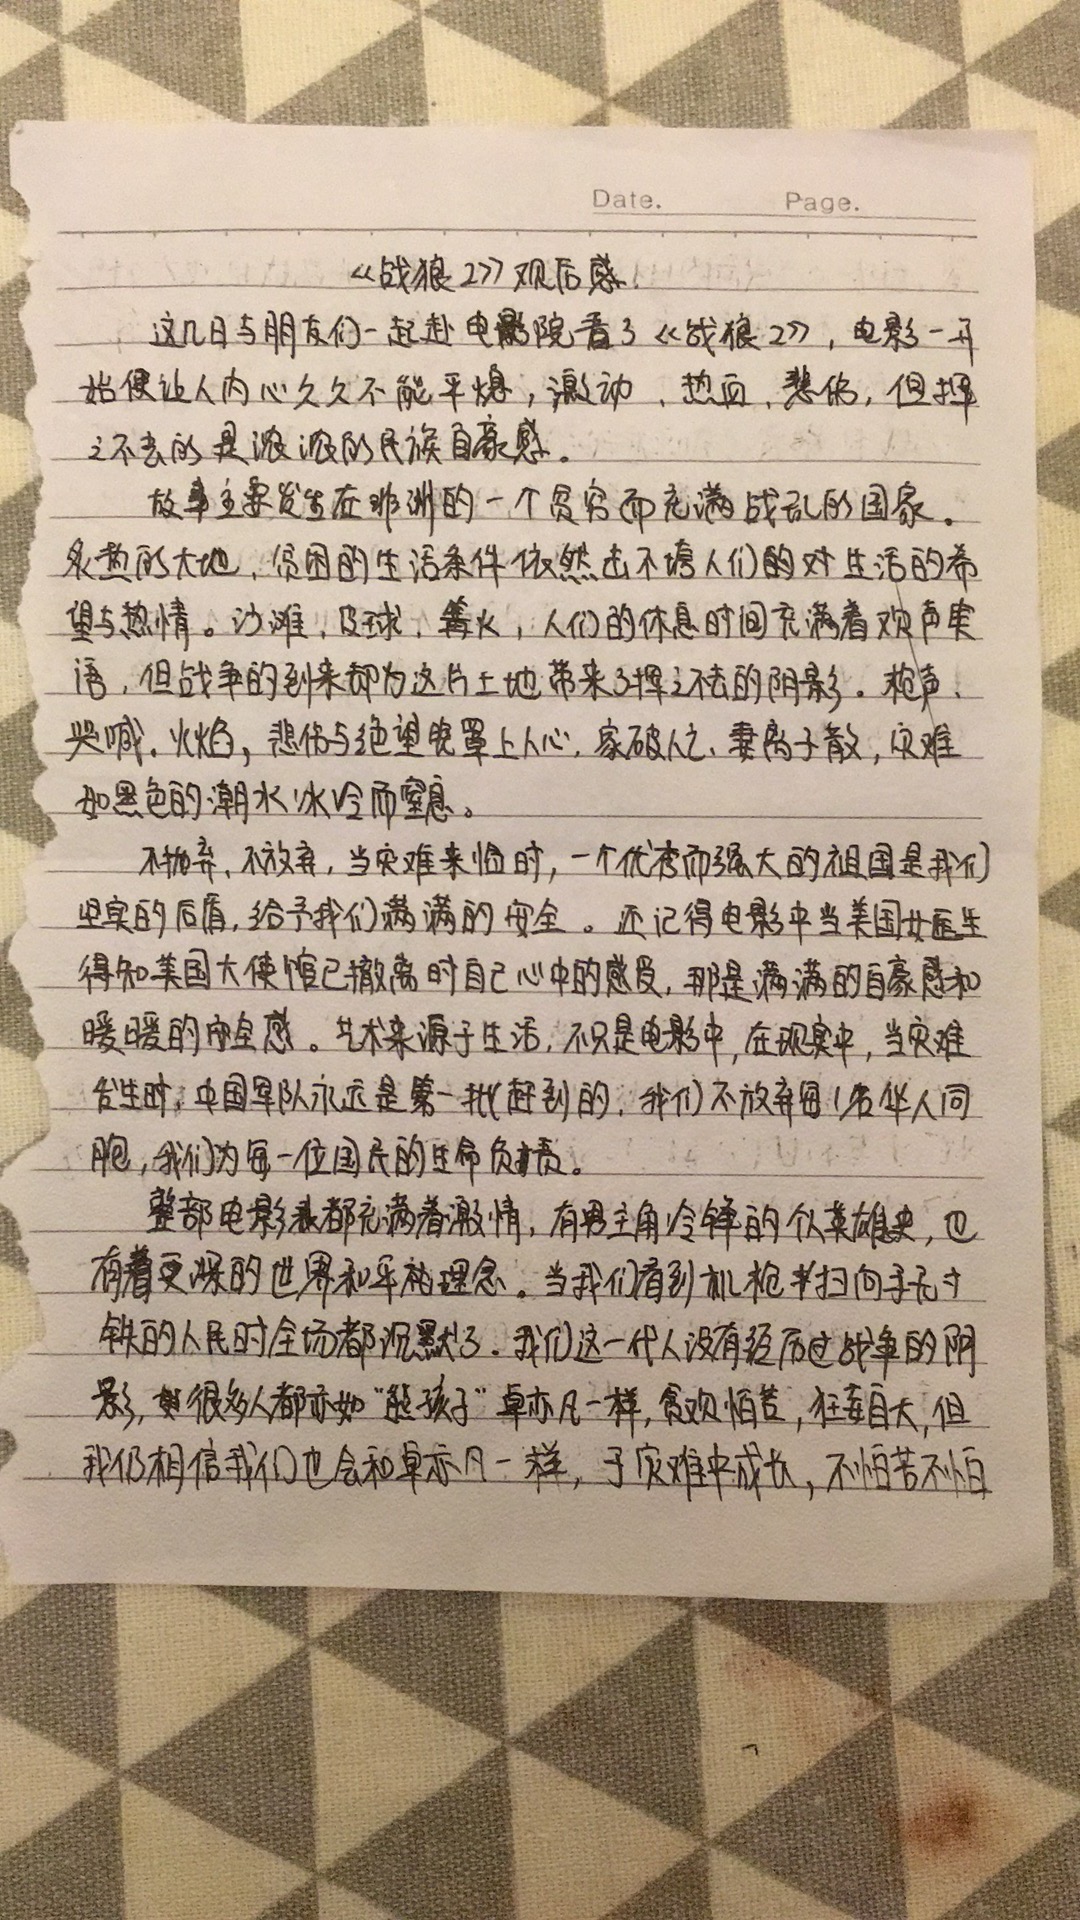 Date. Page.
《战狼2》观后感
这几日与朋友们一起赴电影院看了《战狼2》，电影一开
始便让人内心久久不能平熄，激动、热血、悲伤，但挥
之不去的是浓浓的民族自豪感。
故事主要发生在非洲的一个贫穷而充满战乱的国家。
炙热的大地、贫困的生活条件依然击不垮人们的对生活的希
望与热情。沙滩、皮球、篝火，人们的休息时间充满着欢声笑
语，但战争的到来却为这片土地带来了挥之不去的阴影。枪声、
哭喊、火焰，悲伤与绝望笼罩上人心，家破人亡、妻离子散，灾难
如黑色的潮水冰冷而窒息。
不抛弃、不放弃，当灾难来临时，一个优秀而强大的祖国是我们
坚实的后盾，给予我们满满的安全。还记得电影中当美国女医生
得知美国大使馆已撤离时自己心中的感受，那是满满的自豪感和
暖暖的安全感。艺术来源于生活，不只是电影中，在现实中，当灾难
发生时，中国军队永远是第一批赶到的，我们不放弃每1名华人同
胞，我们为每一位国民的生命负责。
整部电影都充满着激情，有男主角冷锋的个人英雄，也
有着更深的世界和平的理念。当我们看到机枪扫向手无寸
铁的人民时全场都沉默了。我们这一代人没有经历过战争的阴
影，很多人都亦如“熊孩子”卓亦凡一样，贪欢怕苦，狂妄自大，但
我仍相信我们也会和卓亦凡一样，于灾难中成长，不怕苦不怕